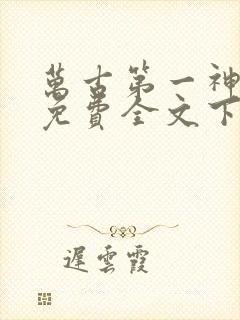 萬古第一神
免費全文下
遲雲霞